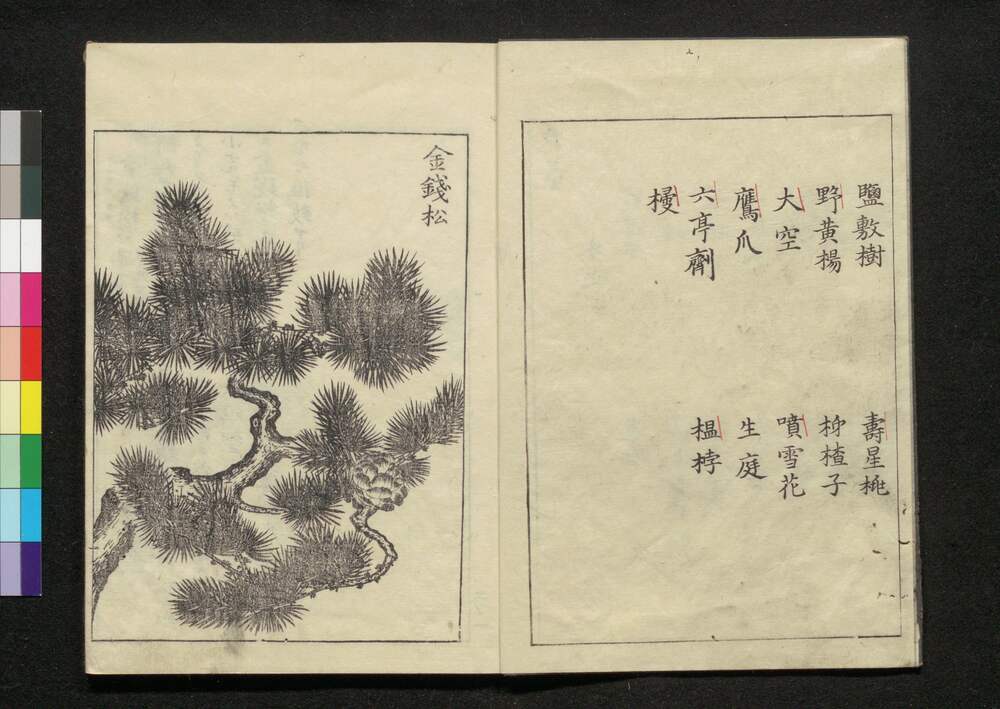 鹽敷樹
壽星桃
野黄楊
楂子
大空
噴雪花
鷹爪
生庭
六亭劑
榲桲
金錢松